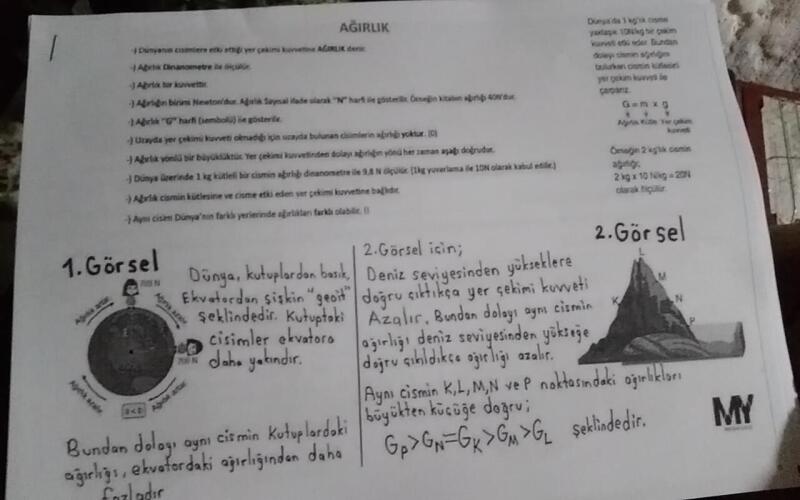 AĞIRLIK
-) Dünyanın cisimlere etki ettiği yer çekimi kuvvetine AĞIRLIK denir.
-) Ağırlık Dinanometre ile ölçülür.
-) Ağırlık bir kuvvettir.
-) Ağırlığın birimi Newton'dur. Ağırlık Sayısal ifade olarak "N" harfi ile gösterilir. Örneğin kitabın ağırlığı 40N'dur.
-) Ağırlık "G" harfi (sembolü) ile gösterilir.
-) Uzayda yer çekimi kuvveti olmadığı için uzayda bulunan cisimlerin ağırlığı yoktur. (0)
-) Ağırlık yönlü bir büyüklüktür. Yer çekimi kuvvetinden dolayı ağırlığın yönü her zaman aşağı doğrudur.
-) Dünya üzerinde 1 kg kütleli bir cismin ağırlığı dinanometre ile 9,8 N ölçülür. (1kg yuvarlama ile 10N olarak kabul edilir.)
-) Ağırlık cismin kütlesine ve cisme etki eden yer çekimi kuvvetine bağlıdır.
-) Aynı cisim Dünya'nın farklı yerlerinde ağırlıkları farklı olabilir.
Dünya'da 1 kg'lık cisme
yaklaşık 10N/kg bir çekim
kuvveti etki eder. Bundan
dolayı cismin ağırlığını
bulurken cismin kütlesini
yer çekimi kuvveti ile
çarparız.
G = m x g
Ağırlık Kütle Yer çekimi
kuvveti
Örneğin 2 kg'lık cismin
ağırlığı;
2 kg x 10 N/kg = 20N
olarak ölçülür.
1.Görsel
Ağırlık artar
Ağırlık azalır
700 N
Ağırlık azalır
Ağırlık artar
Dünya, kutuplardan basık,
Ekvatordan şişkin "geoit"
şeklindedir. Kutuptaki
cisimler ekvatora
daha yakındır.
Bundan dolayı aynı cismin Kutuplardaki
ağırlığı, ekvatordaki ağırlığından daha
fazladır
2.Görsel için;
Deniz seviyesinden yükseklere
doğru çıktıkça yer çekimi kuvveti
Azalır. Bundan dolayı aynı cismin
ağırlığı deniz seviyesinden yükseğe
doğru çıkıldıkça ağırlığı azalır.
Aynı cismin K,L,M,N ve P noktasındaki ağırlıkları
büyükten küçüğe doğru;
GP>GN=GK>GM>GL şeklindedir.
2.Görsel
L
M
K
N
P
MY